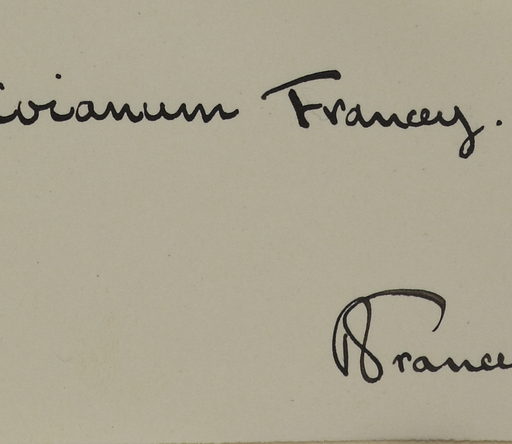 ivianum Francey.
France